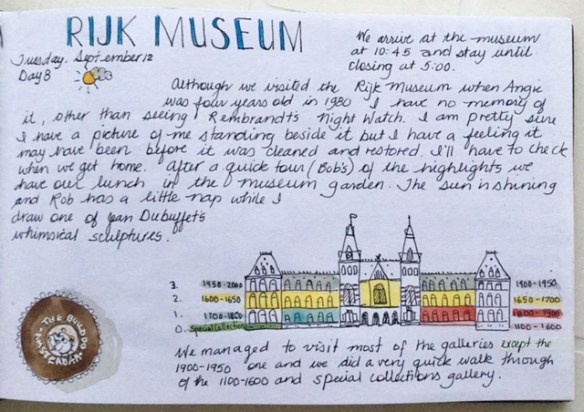 RIJK MUSEUM
Tuesday, September 12
Day 8
We arrive at the museum
at 10:45 and stay until
closing at 5:00.
Although we visited the Rijk Museum when Angie
was four years old in 1980 I have no memory of
it, other than seeing Rembrandt's Night Watch. I am pretty sure
I have a picture of me standing beside it but I have a feeling it
may have been before it was cleaned and restored. I'll have to check
when we get home. After a quick tour (Bob's) of the highlights we
have our lunch in the museum garden. The sun is shining
and Rob has a little nap while I
draw one of Jean Dubuffet's
whimsical sculptures.
3. 1950-2000 1900-1950
2. 1600-1650 1650-1700
1. 1700-1800
0. Special Collections 1100-1600
THE BULLDOG
AMSTERDAM
We managed to visit most of the galleries except the
1900-1950 one and we did a very quick walk through
of the 1100-1600 and special collections gallery.